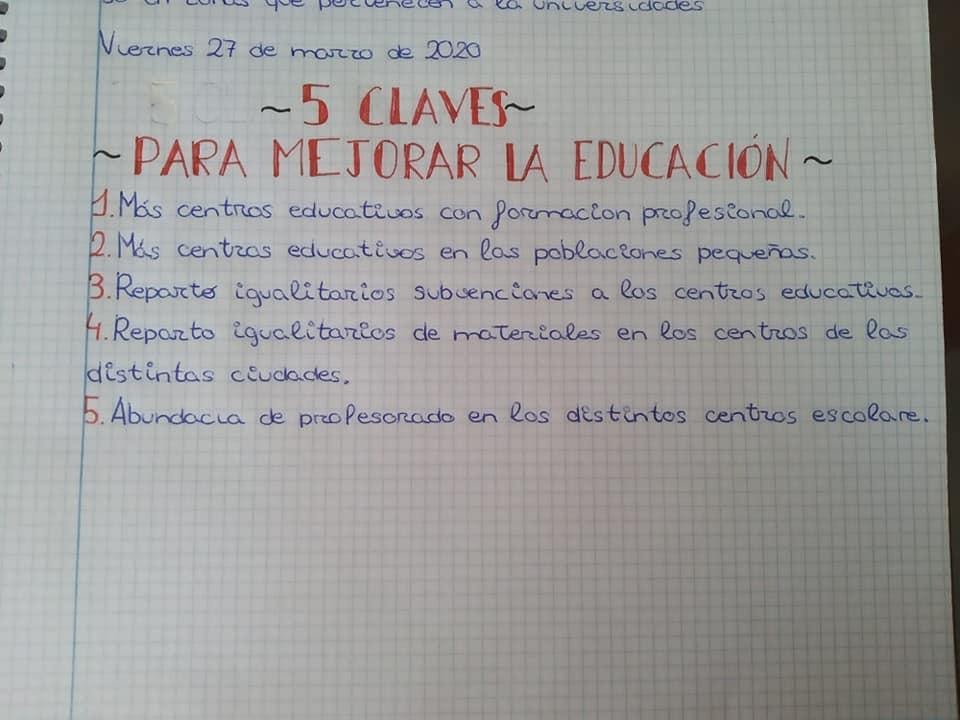 que pertenecen a la universidades
Viernes 27 de marzo de 2020
~5 CLAVES~
~PARA MEJORAR LA EDUCACIÓN~
1. Más centros educativos con formacion profesional.
2. Más centros educativos en las poblaciones pequeñas.
3. Reparto igualitarios subvenciones a los centros educativos.
4. Reparto igualitarios de materiales en los centros de las
distintas ciudades.
5. Abundacia de profesorado en los distintos centros escolare.